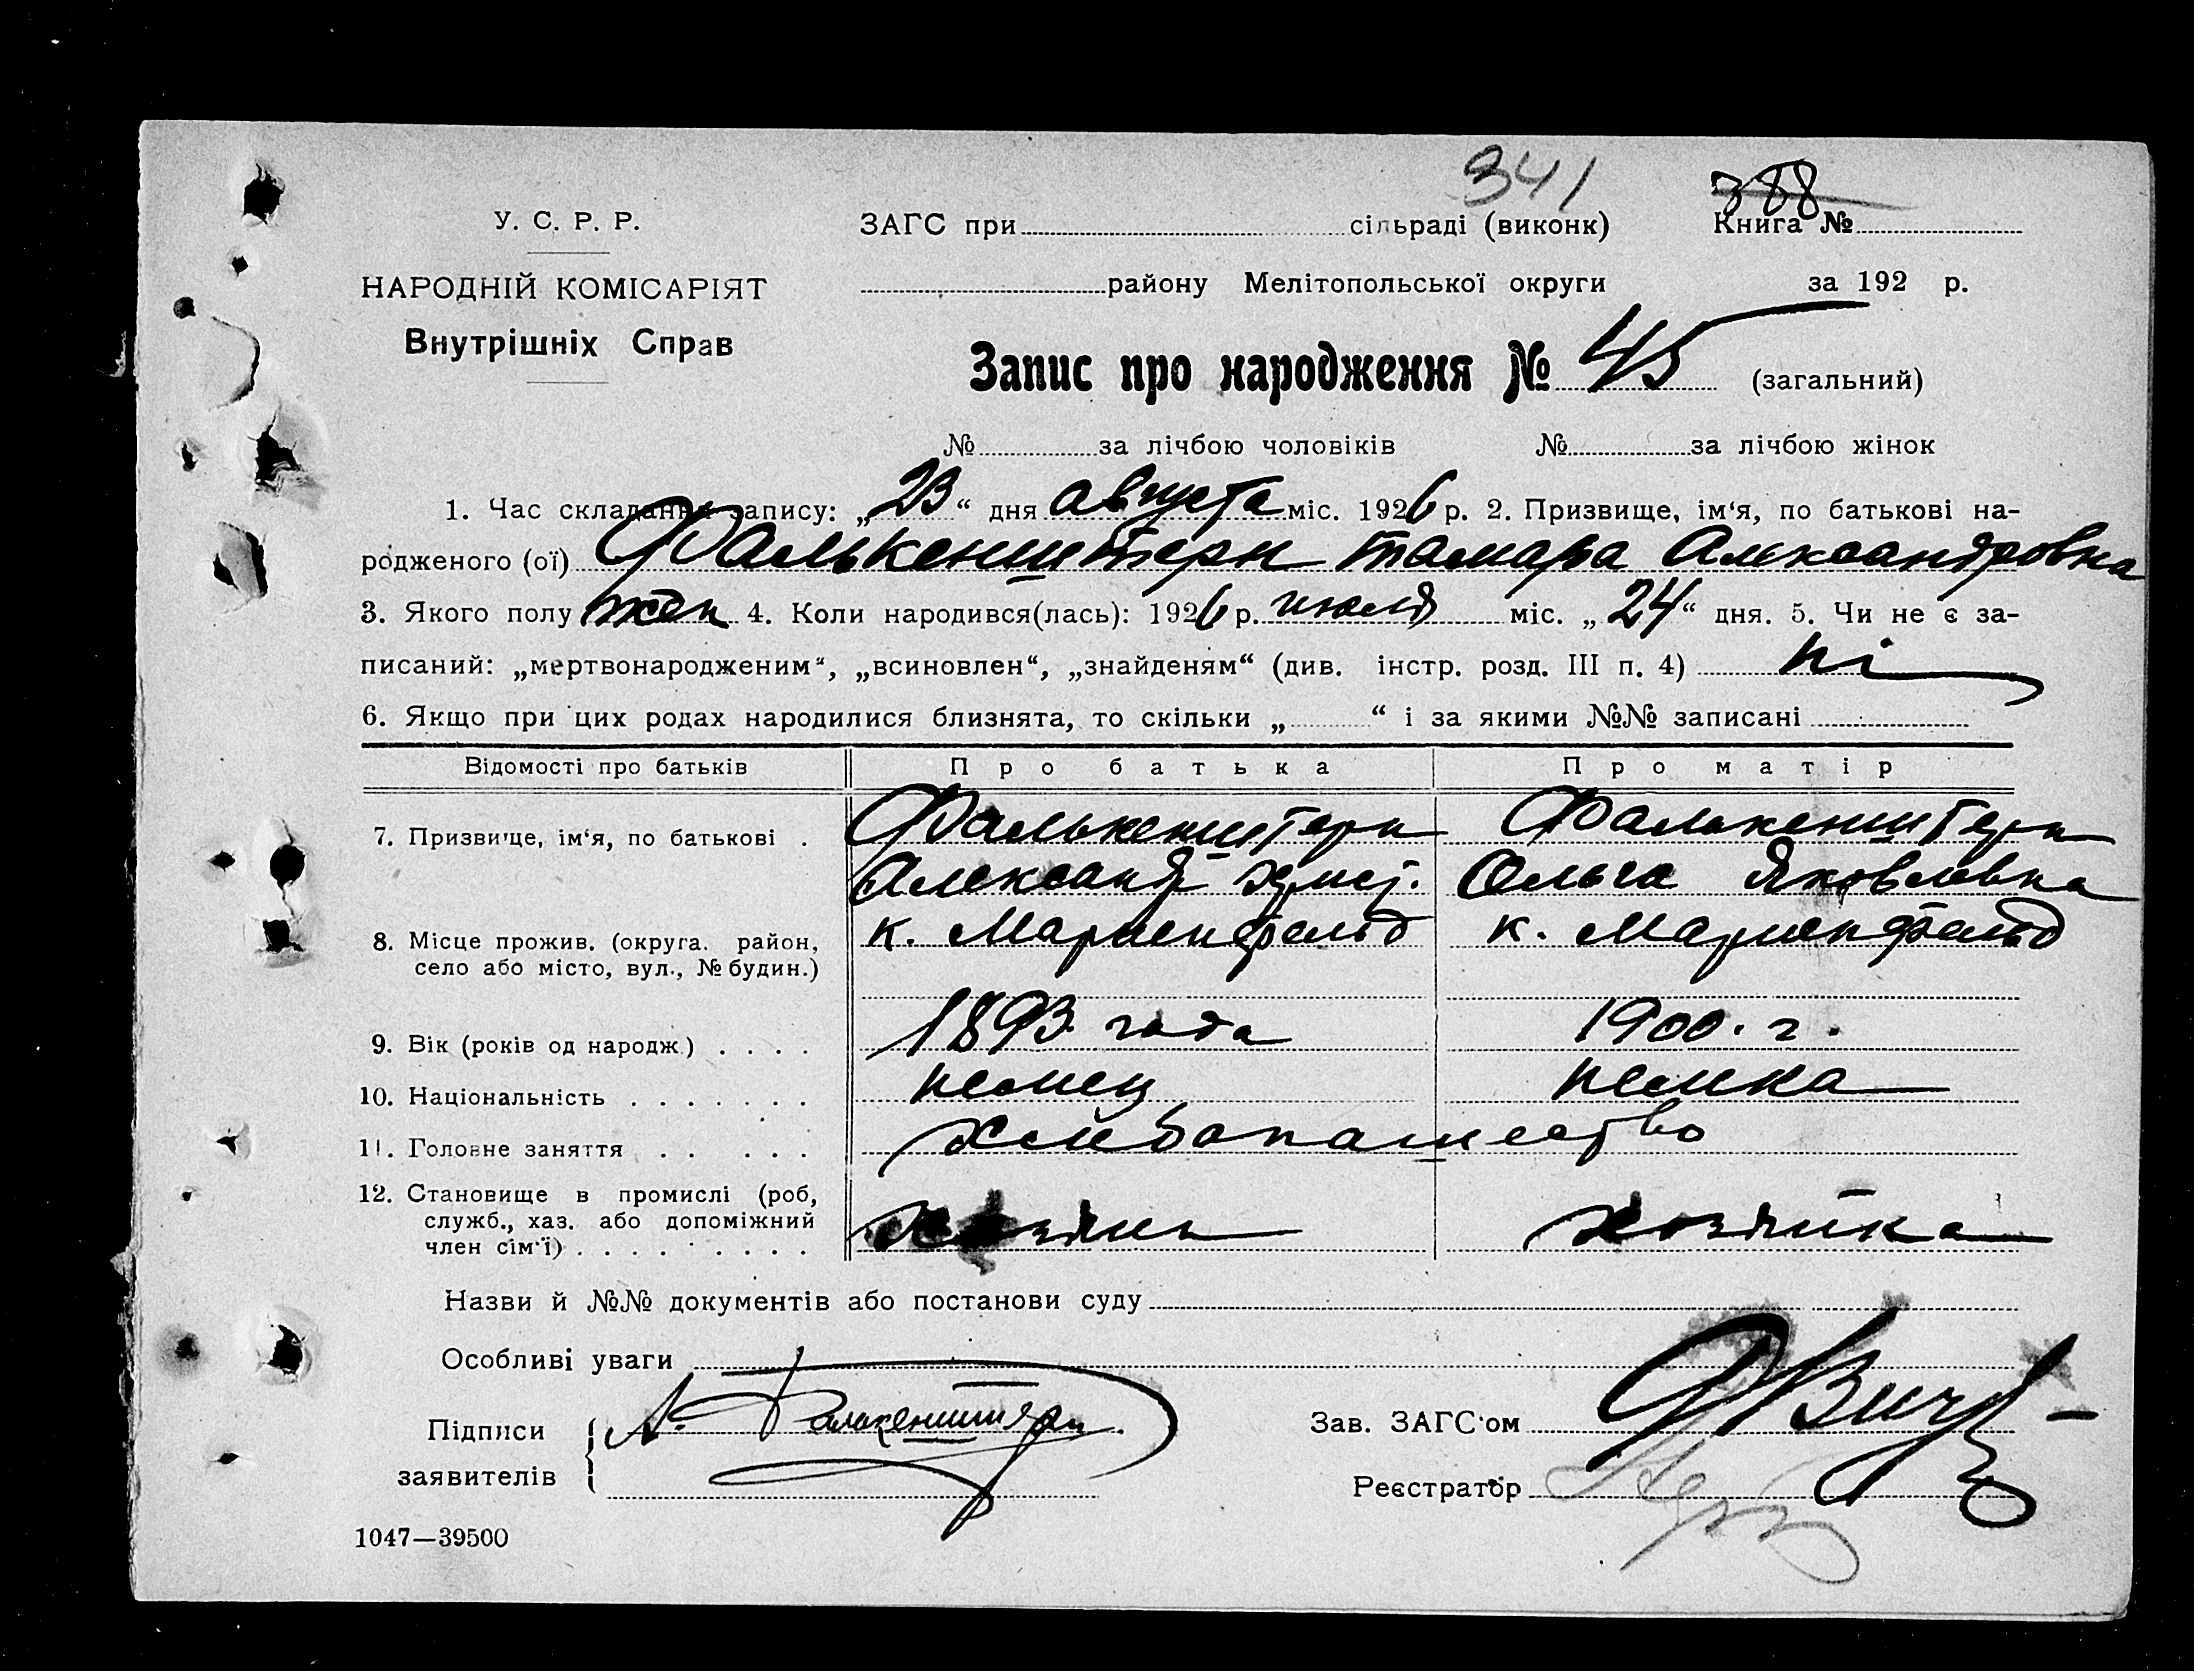 341 388
У. С. Р. Р. ЗАГС при сільраді (виконк) Книга №
НАРОДНІЙ КОМІСАРІЯТ району Мелітопольської округи за 192 р.
Внутрішніх Справ
Запис про народження № 45 (загальний)
№ за лічбою чоловіків № за лічбою жінок
1. Час складання запису: „23“ дня августа міс. 1926 р. 2. Призвище, ім‘я, по батькові на-
родженого (ої) Фалькенштерн Тамара Александровна
3. Якого полу жен 4. Коли народився(лась): 1926 р. июля міс. „24“ дня. 5. Чи не є за-
писаний: „мертвонародженим“, „всиновлен“, „знайденям“ (див. інстр. розд. III п. 4) ні
6. Якщо при цих родах народилися близнята, то скільки „ “ і за якими №№ записані
Відомості про батьків Про батька Про матір
7. Призвище, ім‘я, по батькові . Фалькенштерн Фалькенштерн
Александр Ольга Яковлевна
8. Місце прожив. (округа. район, к. Мариенфельд к. Мариенфельд
село або місто, вул., № будин.)
9. Вік (років од народж.) . . . . 1893 года 1900. г.
10. Національність . . . . . . . немец немка
11. Головне заняття . . . . . Хлебопашество
12. Становище в промислі (роб, хозяин хозяйка
служб., хаз. або допоміжний
член сім‘ї) . . . . . . . . .
Назви й №№ документів або постанови суду
Особливі уваги
Підписи А. Фалькенштерн Зав. ЗАГС‘ом
заявителів Реєстратор
1047—39500